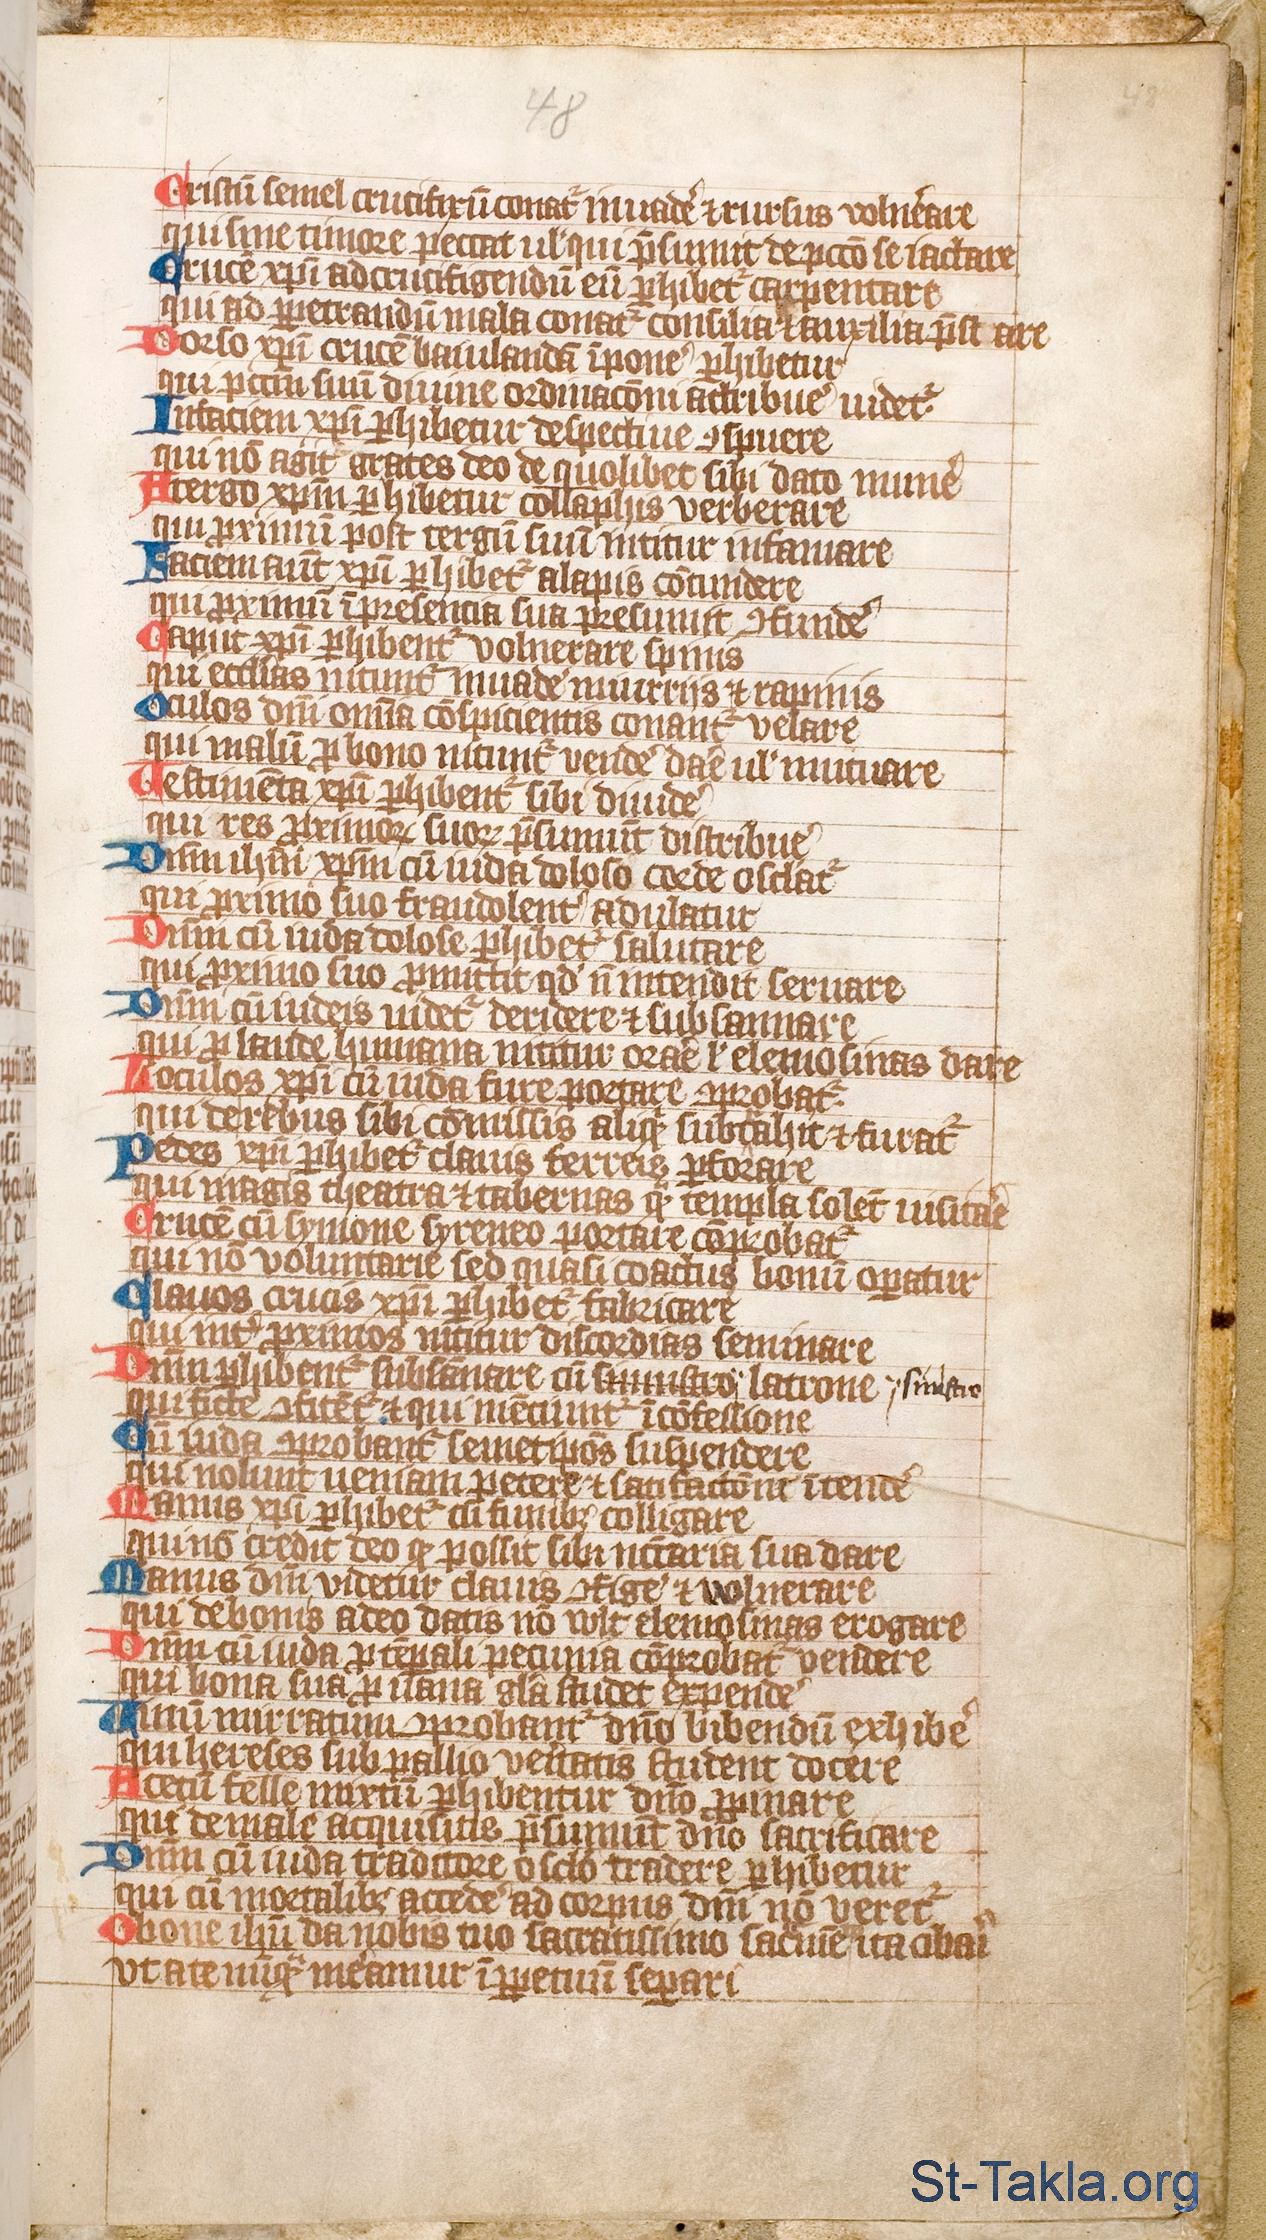 48
Cristū semel crucifixū conat᷑ inuadē ⁊ rursus volnerare
qui sine timore peccat ul' qui p̄sumit de pctō se iactare
Crucē xp̄i ad crucifigendū eū ꝑhibet᷑ carpentare
qui ad ꝑpetrandū mala conat᷑ consilia ⁊ auxilia p̄st are
Dorso xp̄i crucē baiulandā īpone᾽ ꝑhibetur
qui pctm̄ suū diuine ordinacōni attribue᾽ uidet᷑
In faciem xp̄i ꝑhibetur despectiue ꝯspuere
qui nō agit grates deo de quolibet sibi dato mune᾽
A tergo xp̄m ꝑhibetur collaphis verberare
qui ꝓximū post tergū suū nititur infamare
Faciem aūt xp̄i ꝑhibet᷑ alapis cōtundere
qui ꝓximū ī presencia sua presumit ꝯfunde᾽
Caput xp̄i ꝑhibent᷑ volnerare spinis
qui ecclīas nitunt᷑ inuade᾽ iniurijs ⁊ rapinis
Oculos dn̄i om̄ia cōspicientis conant᷑ velare
qui malū ꝓ bono nitunt᷑ vende᾽ daē ul' mutuare
Vestimēta xp̄i ꝑhibent᷑ sibi diuide᾽
qui res ꝓximoꝝ suoꝝ p̄sumūt distribue᾽
Dn̄m ih̄m xp̄m cū iuda doloso corde osclat᷑
qui ꝓximo suo fraudolent᾽ adulatur
Dn̄m cū iuda dolose ꝑhibet᷑ salutare
qui ꝓximo suo ꝓmittit qd' n̄ intendit seruare
Dn̄m cū iudeis uidet᷑ deridere ⁊ subsannare
qui ꝓ laude humana nititur oraē l' elemosinas dare
Loculos xp̄i cū iuda fure portare ꝯprobat᷑
qui de rebus sibi cōmissis aliq̄ subtᵃhit ⁊ furat᷑
Pedes xp̄i ꝑhibet᷑ clauis ferreis ꝑforare
qui magis theatra ⁊ tabernas ꝙ templa solet uisitaē
Crucē cū symone syreneo portare cōprobat᷑
qui nō voluntarie sed quasi coactus bonū oꝑatur
Clauos crucis xp̄i ꝑhibet᷑ fabricare
qui int᾽ ꝓximos nititur discordias seminare
Dn̄m ꝑhibent᷑ subsānare cū sinistro latrone sinistro
qui ficte ꝯfitēt᷑ ⁊ qui mēciunt᷑ ī cōfessione
Cū iuda ꝯprobant᷑ semetip̄os suspendere
qui nolunt ueniam petere ⁊ satisfactōni ītende᾽
Manus xp̄i ꝑhibet᷑ cū funibꝫ colligare
qui nō credit deo ꝙ possit sibi nccāria sua dare
Manus dn̄i videtur clauis ꝯfige᾽ ⁊ wolnerare
qui de bonis a deo datis nō wlt elemosinas erogare
Dn̄m cū iuda ꝓ tēꝑali pecunia cōprobat᷑ vendere
qui bona sua ꝓ uana gl̄a studet expende᾽
Vinū mirratum ꝯprobant᷑ dn̄o bibendū exhibe᾽
qui hereses sub pallio veritatis student docere
Acetū felle mixtū ꝑhibentur dn̄o ꝓpinare
qui de male acquisitis p̄sumūt dn̄o sacrificare
Dn̄m cū iuda traditore osclō tradere ꝑhibetur
qui cū mortalibꝫ accede᾽ ad corpus dn̄i nō veret᷑
O bone ih̄u da nobis tuo sacratissimo sacᵃmē ita cibari
vt a te nūqᵃ meamur ī ꝑpetuū seꝑari
St-Takla.org